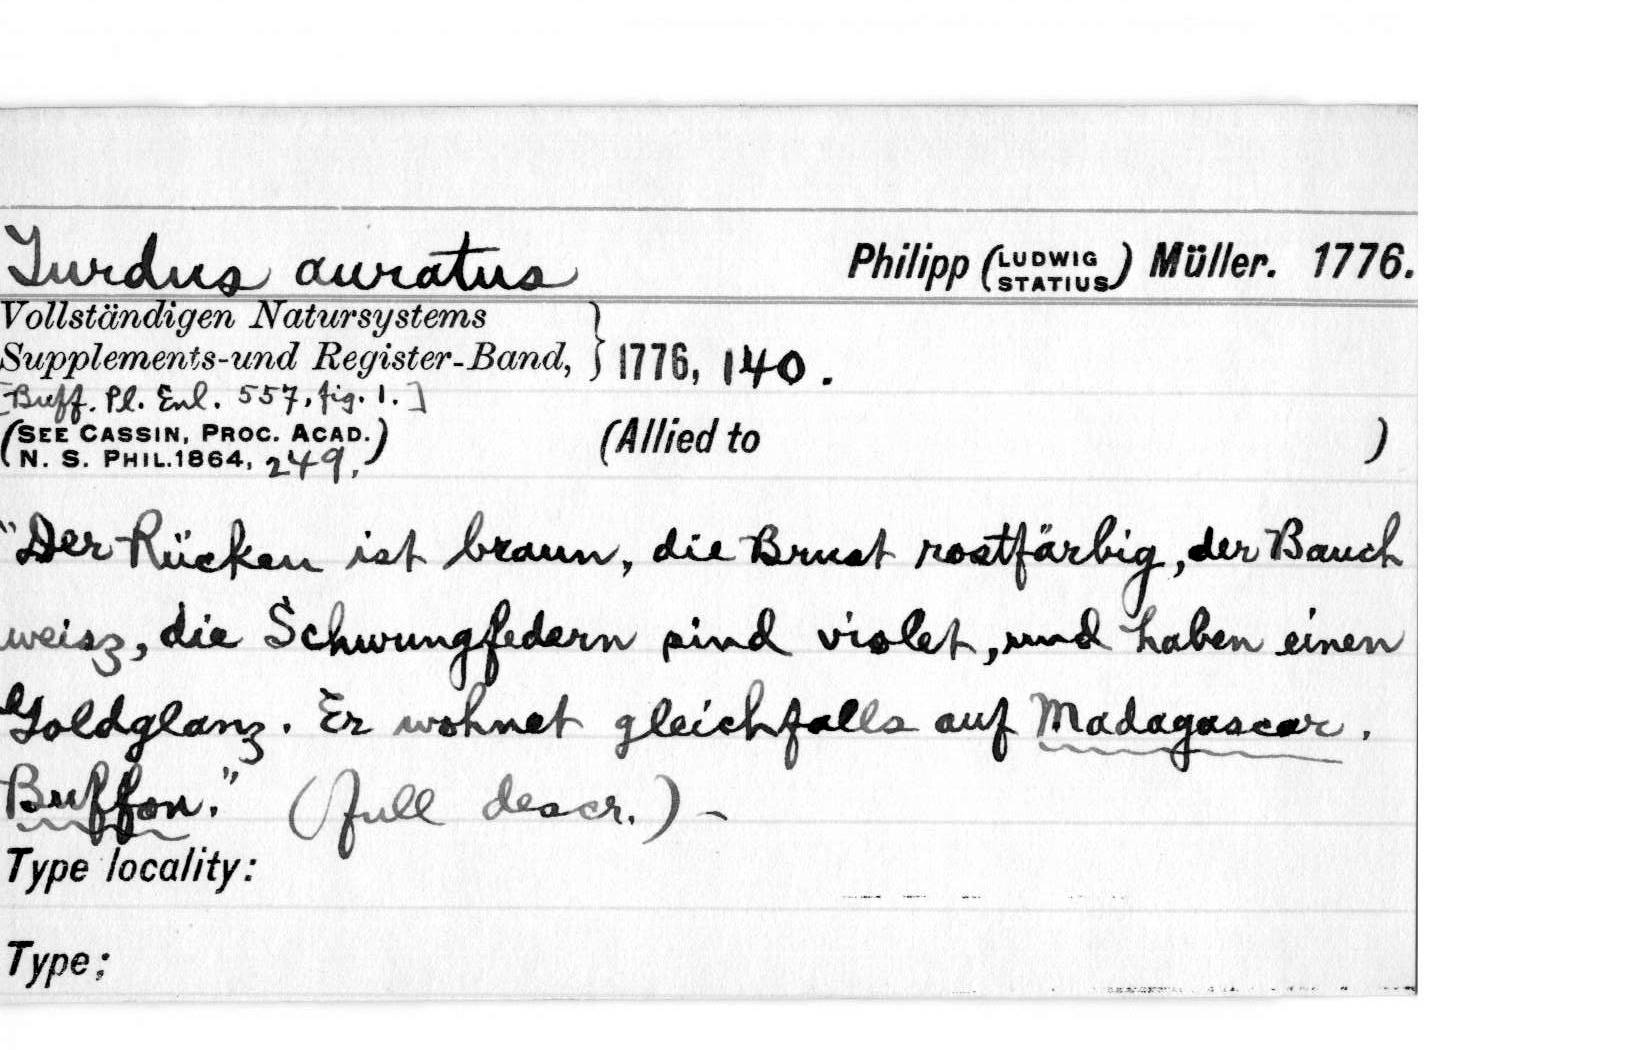 Turdus auratus Philipp (LUDWIG STATIUS) Müller. 1776.
Vollständigen Natursystems
Supplements-und Register-Band, } 1776, 140.
[Buff. Pl. Enl. 557, fig. 1.]
(SEE CASSIN, PROC. ACAD. (Allied to )
N. S. PHIL. 1864, 249.)
"Der Rücken ist braun, die Brust rostfärbig, der Bauch
weisz, die Schwungfedern sind violet, und haben einen
Goldglanz. Er wohnet gleichfalls auf Madagascar.
Buffon." (full descr.) -
Type locality:
Type;